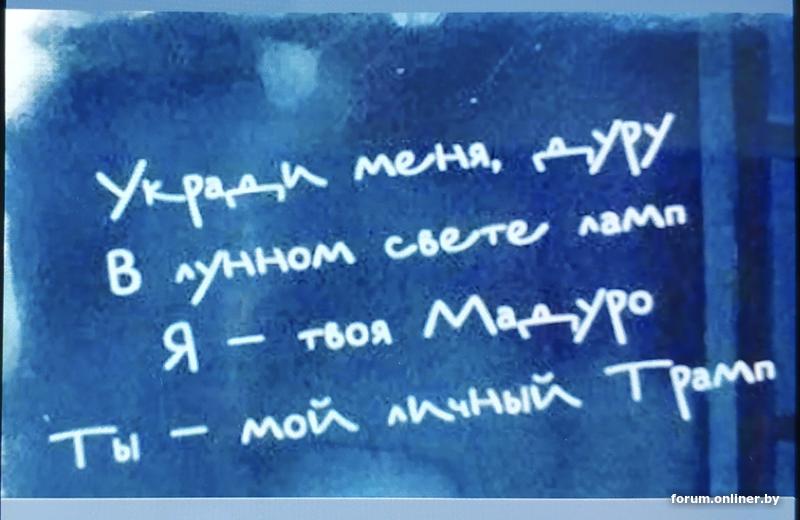 Укради меня, дуру
В лунном свете ламп
Я – твоя Мадуро
Ты – мой личный Трамп
forum.onliner.by